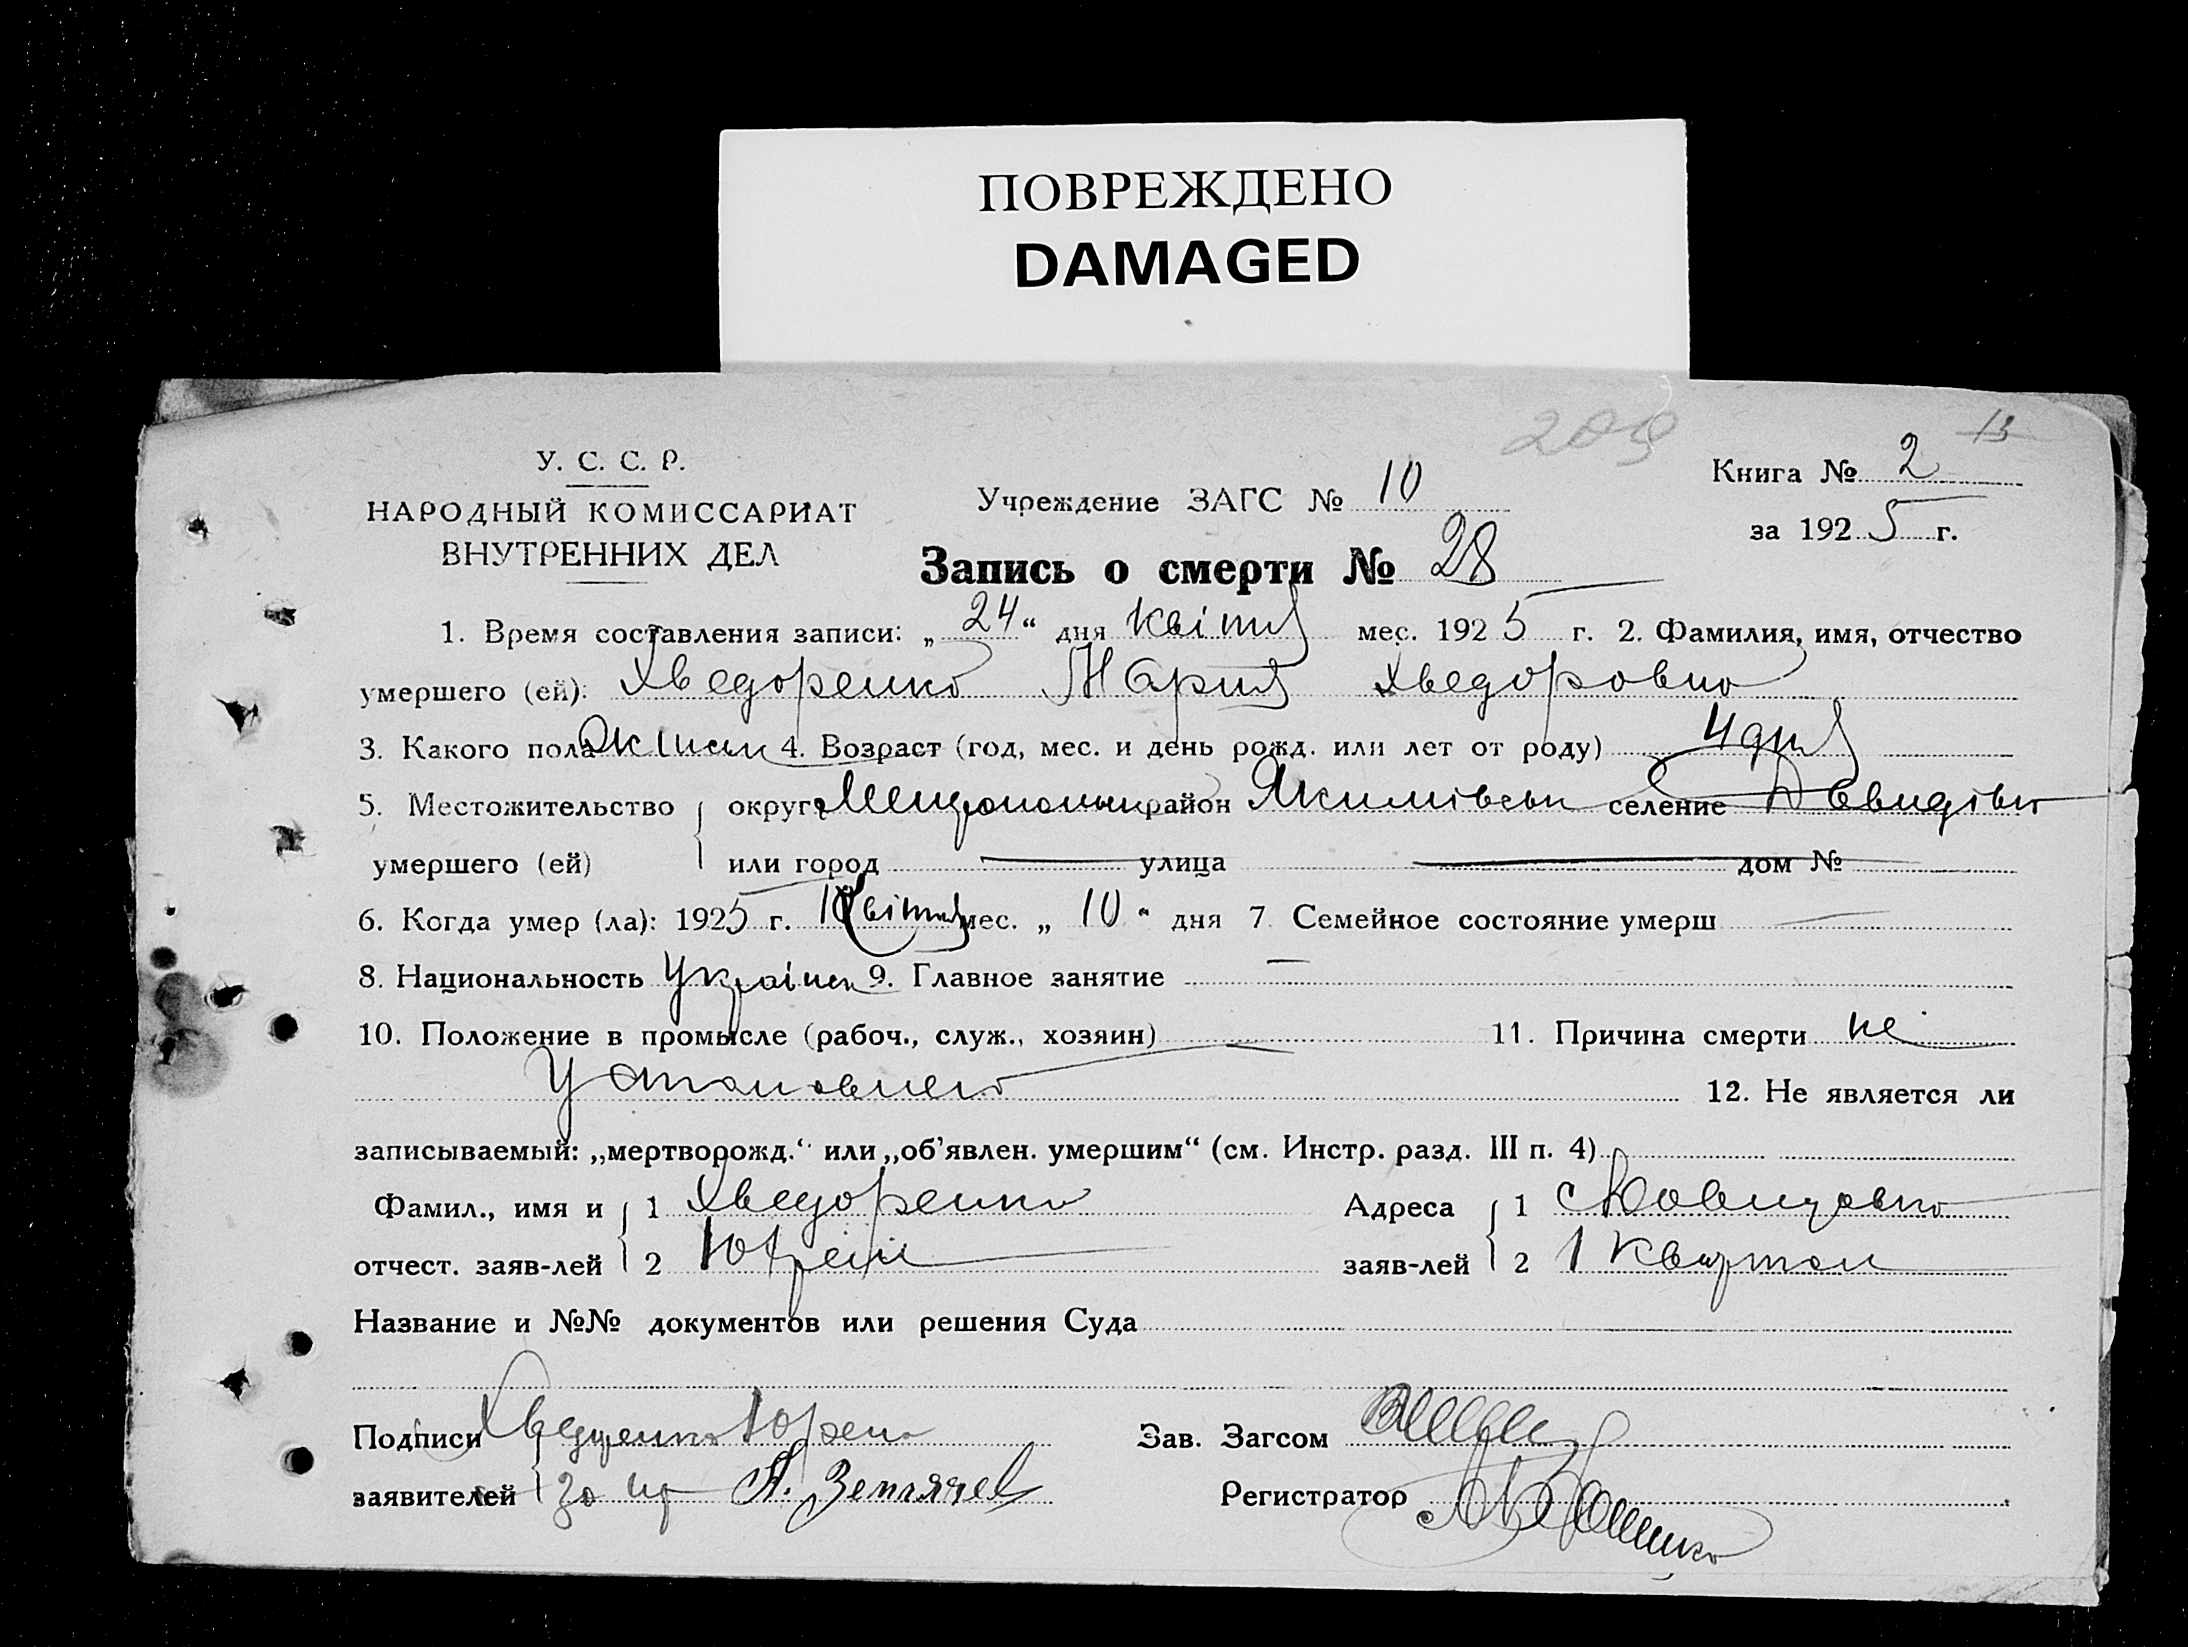 ПОВРЕЖДЕНО
DAMAGED
209
13
У. С. С. Р.
НАРОДНЫЙ КОМИССАРИАТ
ВНУТРЕННИХ ДЕЛ
Учреждение ЗАГС № 10
Книга № 2
за 1925 г.
Запись о смерти № 28
1. Время составления записи: „24“ дня квітня мес. 1925 г. 2. Фамилия, имя, отчество
умершего (ей): Хведоренко Марія Хведоровна
3. Какого пола жіноч 4. Возраст (год, мес. и день рожд. или лет от роду) 4 дня
5. Местожительство умершего (ей) округ Мелітопольськ район Якимівськ селение Давидівк
или город — улица — дом №
6. Когда умер (ла): 1925 г. квітня мес. „10“ дня 7 Семейное состояние умерш —
8. Национальность Україн 9. Главное занятие —
10. Положение в промысле (рабоч., служ., хозяин) — 11. Причина смерти не
установлено 12. Не является ли
записываемый: „мертворожд.“ или „об’явлен. умершим“ (см. Инстр. разд. III п. 4)
Фамил., имя и отчест. заяв-лей 1 Хведоренко Адреса заяв-лей 1 с Давидовка
2 2 1 квартал
Название и №№ документов или решения Суда
Подписи заявителей Хведоренко Зав. Загсом
за А. Землячев Регистратор